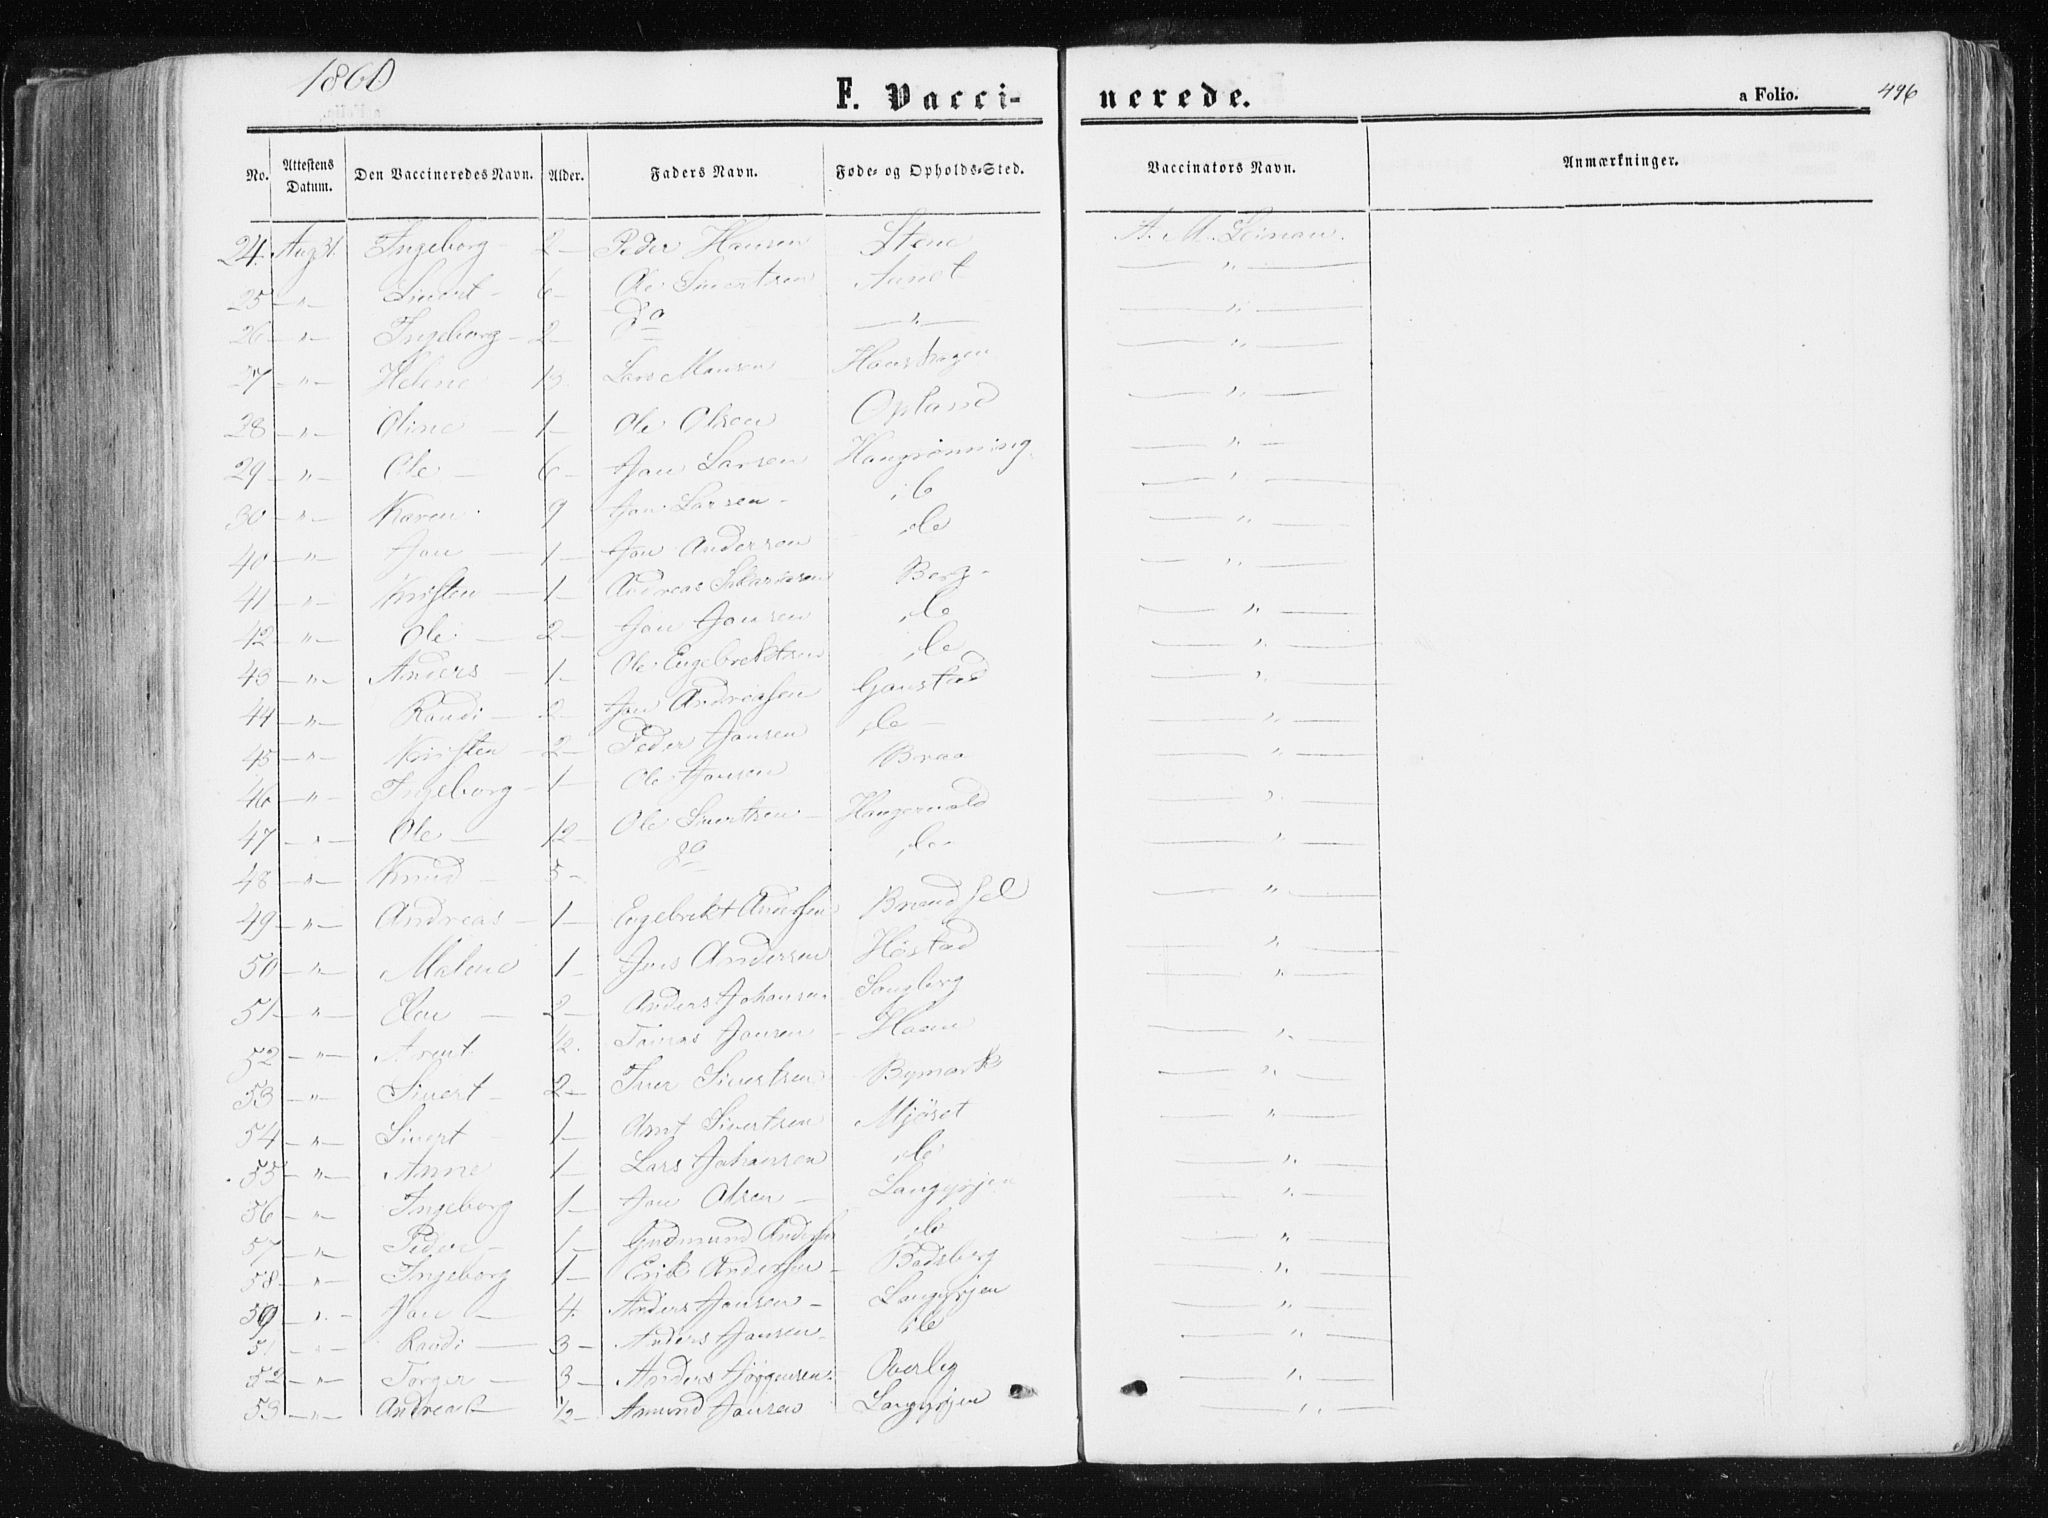 1860
F. Vacci-
nerede.
a Folio.
496
No. Attestens Datum. Den Vaccineredes Navn. Alder. Faders Navn. Føde- og Opholds-Sted. Vaccinators Navn. Anmærkninger.
24. Aug 31. Ingeborg - 2 - Peder Hansen Stene A. M. Leiman.
25 - " - Sivert - 6 - Ole Sivertsen Aunet — " —
26 - " - Ingeborg - 2 - Do — " — — " —
27 - " - Helene 13. Lars — " —
28 - " - Oline - 1 - Ole Olsen Opland — " —
29 - " - Ole - 6 - Jon Larsen Haugrønning — " —
30 - " - Karen 9 Jon Larsen - ib — " —
40 - " - Jon - 1 - Jon Andersen ib — " —
41 - " - Kristen - 1 - Andreas Berg - — " —
42 - " - Ole - 2 - Jon Jonsen ib — " —
43 - " - Anders - 1 - Ole Engebrektsen ib — " —
44 - " - Randi - 2 - Jon Andreassen Gaustad — " —
45 - " - Kristen - 2 - Peder Jonsen ib - — " —
46 - " - Ingeborg - 1 - Ole Jonsen Braa — " —
47 - " - Ole - 12 - Ole Sivertsen - Haugervold — " —
48 - " - Knud - 5 - Do ib - — " —
49 - " - Andreas - 1 - Engebrekt Anderssen — " —
50 - " - Malene 1 - Jens Andersen Høstad — " —
51 - " - - 2 - Anders Johansen - Langberg — " —
52 - " - Arent 1/2. Tomas Jonsen - Haan — " —
53 - " - Sivert - 2 - Iver Sivertsen Bymark — " —
54 - " - Sivert - 1 - Arnt Sivertsen Mjøset — " —
55 - " - Anne 1 - Lars Johansen ib — " —
56 - " Ingeborg 1 - Jon Olsen - Langøyjen — " —
57 - " - Peder - 1 - Gudmund Anderssen ib — " —
58 - " - Ingeborg 1 - Erik Anderssen - Badsberg — " —
59 - " - Jon - 4. Anders Jonsen - Langøyjen — " —
51 - " - Randi - 3 - Anders Jonsen - ib — " —
52 - " - Torger - 3 - Anders Jørgensen - Overby — " —
53 - " - Andreas 1/2 - Amund Jonsen Langøyjen — " —